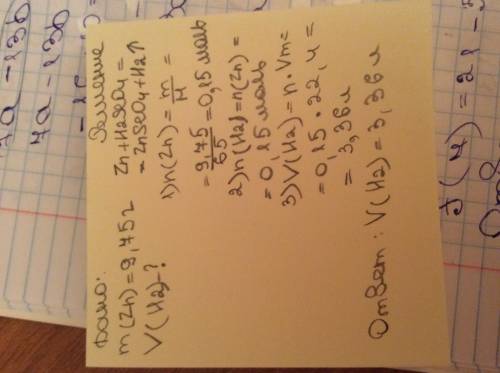 Дано:
m(Zn)=9,75г
V(H2)-?
Решение
Zn+H2SO4=
=ZnSO4+H2↑
1) n(Zn)=m/M=
=9,75/65=0,15моль
2) n(H2)=n(Zn)=
=0,15моль
3) V(H2)=n·Vm=
=0,15·22,4=
=3,36л
Ответ: V(H2)=3,36л
7a-13b
7a-13b